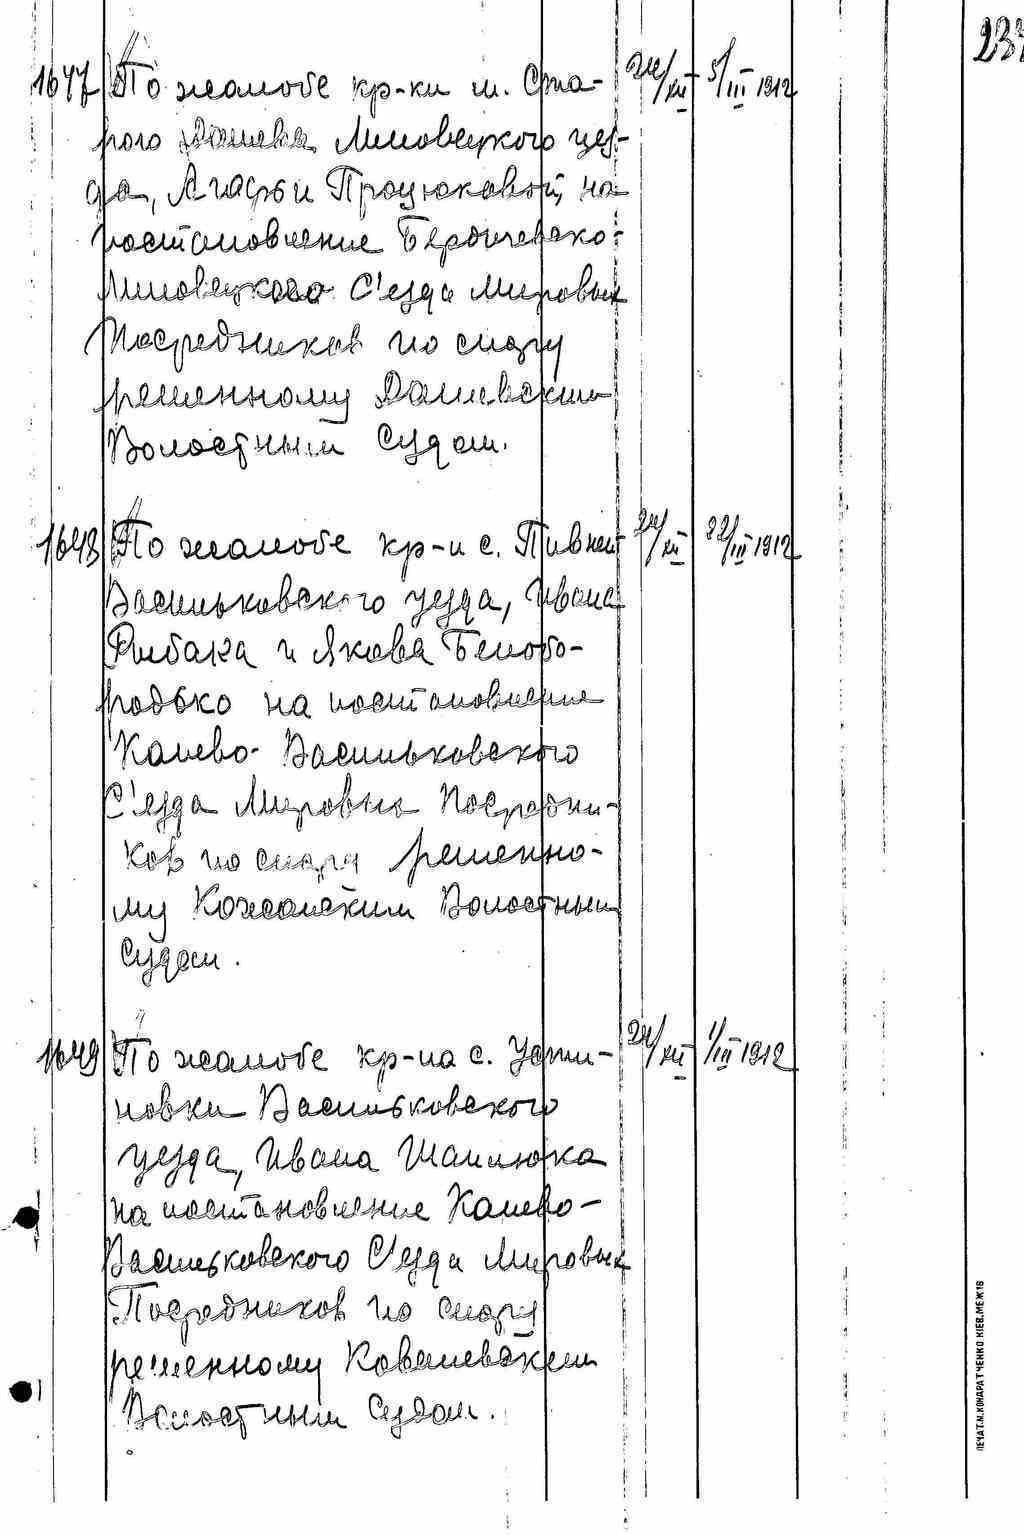 237
1647 По жалобе кр-ки м. Ста- 24/XII 5/III 1912
рого Дашева Липовецкого уез-
да, Агафьи Процюковой, на
постановление Бердичевско-
Липовецкого С'езда Мировых
Посредников по спору
решенному Дашевским
Волостным Судом.
1648 По жалобе кр-н с. Пивней 24/XII 22/III 1912
Васильковского уезда, Ивана
Рыбака и Якова Белобо-
родько на постановление
Канево-Васильковского
С'езда Мировых Посредни-
ков по спору решенно-
му Кожанским Волостным
Судом.
1649 По жалобе кр-на с. Усти- 24/XII 1/III 1912
новки Васильковского
уезда, Ивана Шаплюка
на постановление Канево-
Васильковского С'езда Мировых
Посредников по спору
решенному Ковалевским
Волостным Судом.
ПЕЧАТ. М. КОНДРАТЧЕНКО КІЕВ, МЕЖ 16